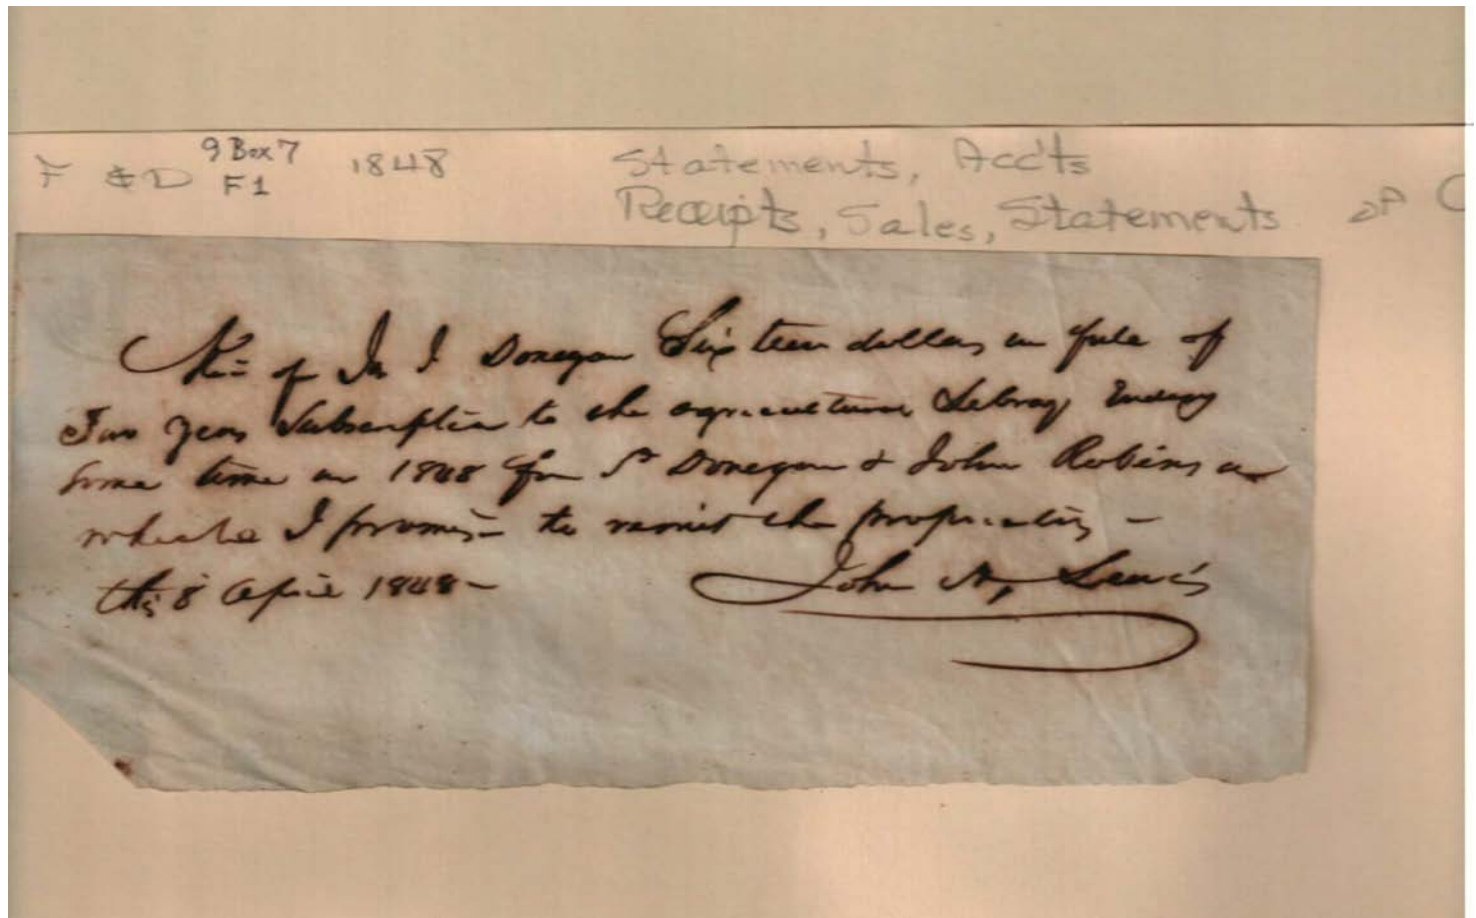 F & D 9 Box 7 1848 Statements, Acc'ts
F1 Receipts, Sales, Statements
of Ja J Donegan Sixteen dollars in full of
Two years Subscription to the agricultural Library Ending
some time in 1848 for Sr Donegan & John Robinson
which I promise to remit the proprietors –
this 8 April 1848 – John N, Lewis